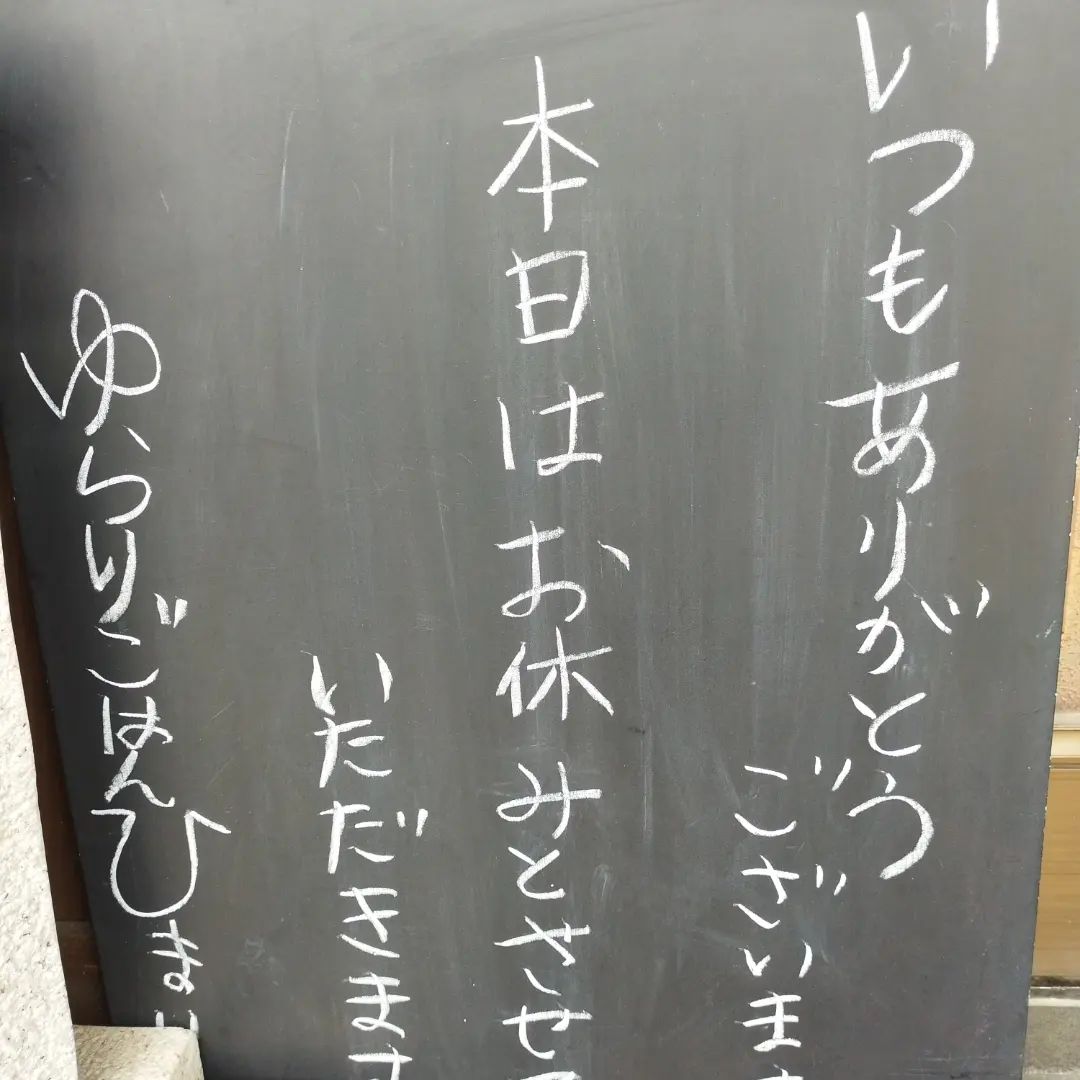 いつもありがとう
ございま
本日はお休みとさせて
いただきます
ゆらりごはんひま